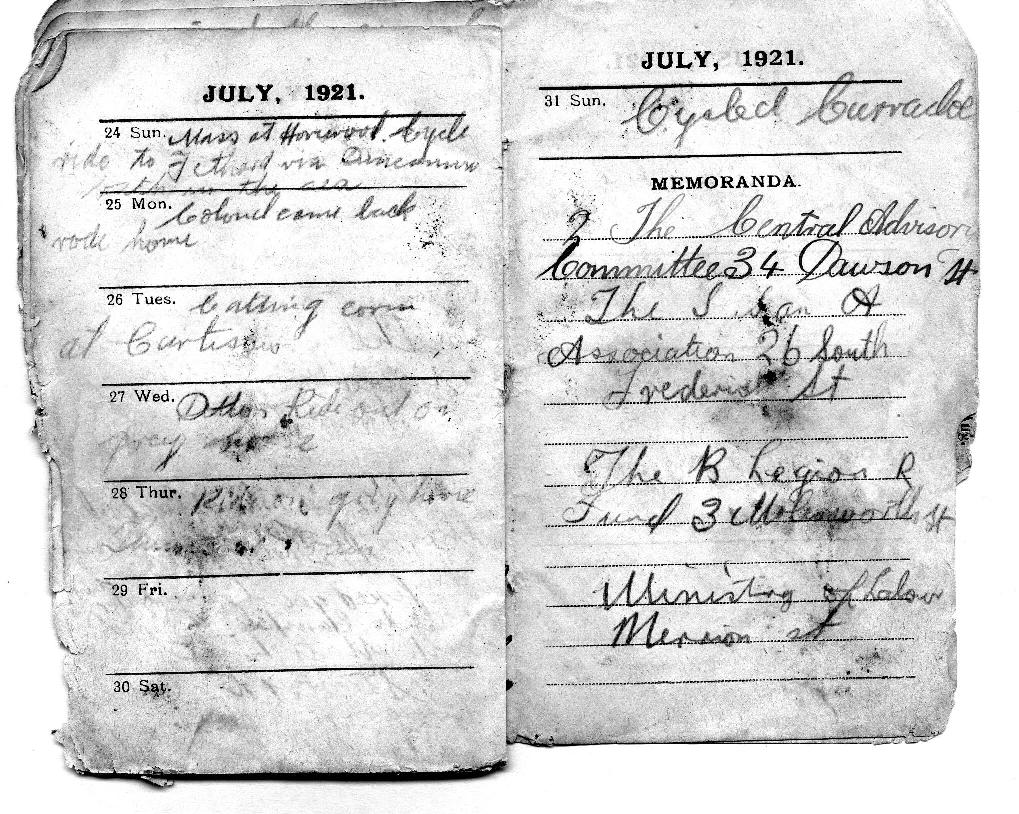 JULY, 1921.
24 Sun. Mass at Horeswood. Cycle
ride to Fethard via Duncannon
in the sea
25 Mon. Colonel came back
rode home
26 Tues. Cutting corn
at Curtis
27 Wed. Ditto Ride out on
grey horse
28 Thur. Ride on grey horse
29 Fri.
30 Sat.
JULY, 1921.
31 Sun. Cycled Curradoe
MEMORANDA.
2 The Central Advisory
Committee 34 Dawson St
The
Association 26 South
Frederick St
The B Legion R
Fund 3 Molesworth St
Ministry of Labour
Merrion st